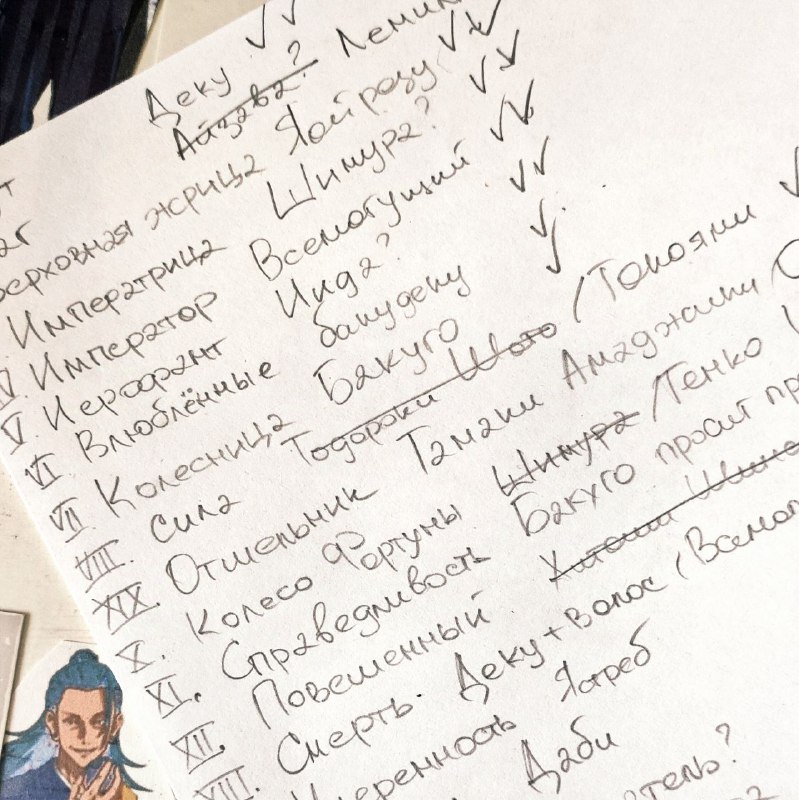 Деку
Айзава? Лемил
верховная жрица Яойрозу
Императрица Шимура?
IV. Император Всемогущий
V. Иерофант Иида?
VI Влюблённые бакудеку
VII Колесница Бакуго
VIII. Сила Тодороки Шото / Токоями
XIX. Отшельник Тамаки Амаджики /
X. Колесо Фортуны Шимура / Тенко
XI. Справедливость Бакуго просит пр
XII. Повешенный Хитоши Шинсо
XIII. Смерть Деку + волос (Всемог
Умеренность Ястреб
Даби